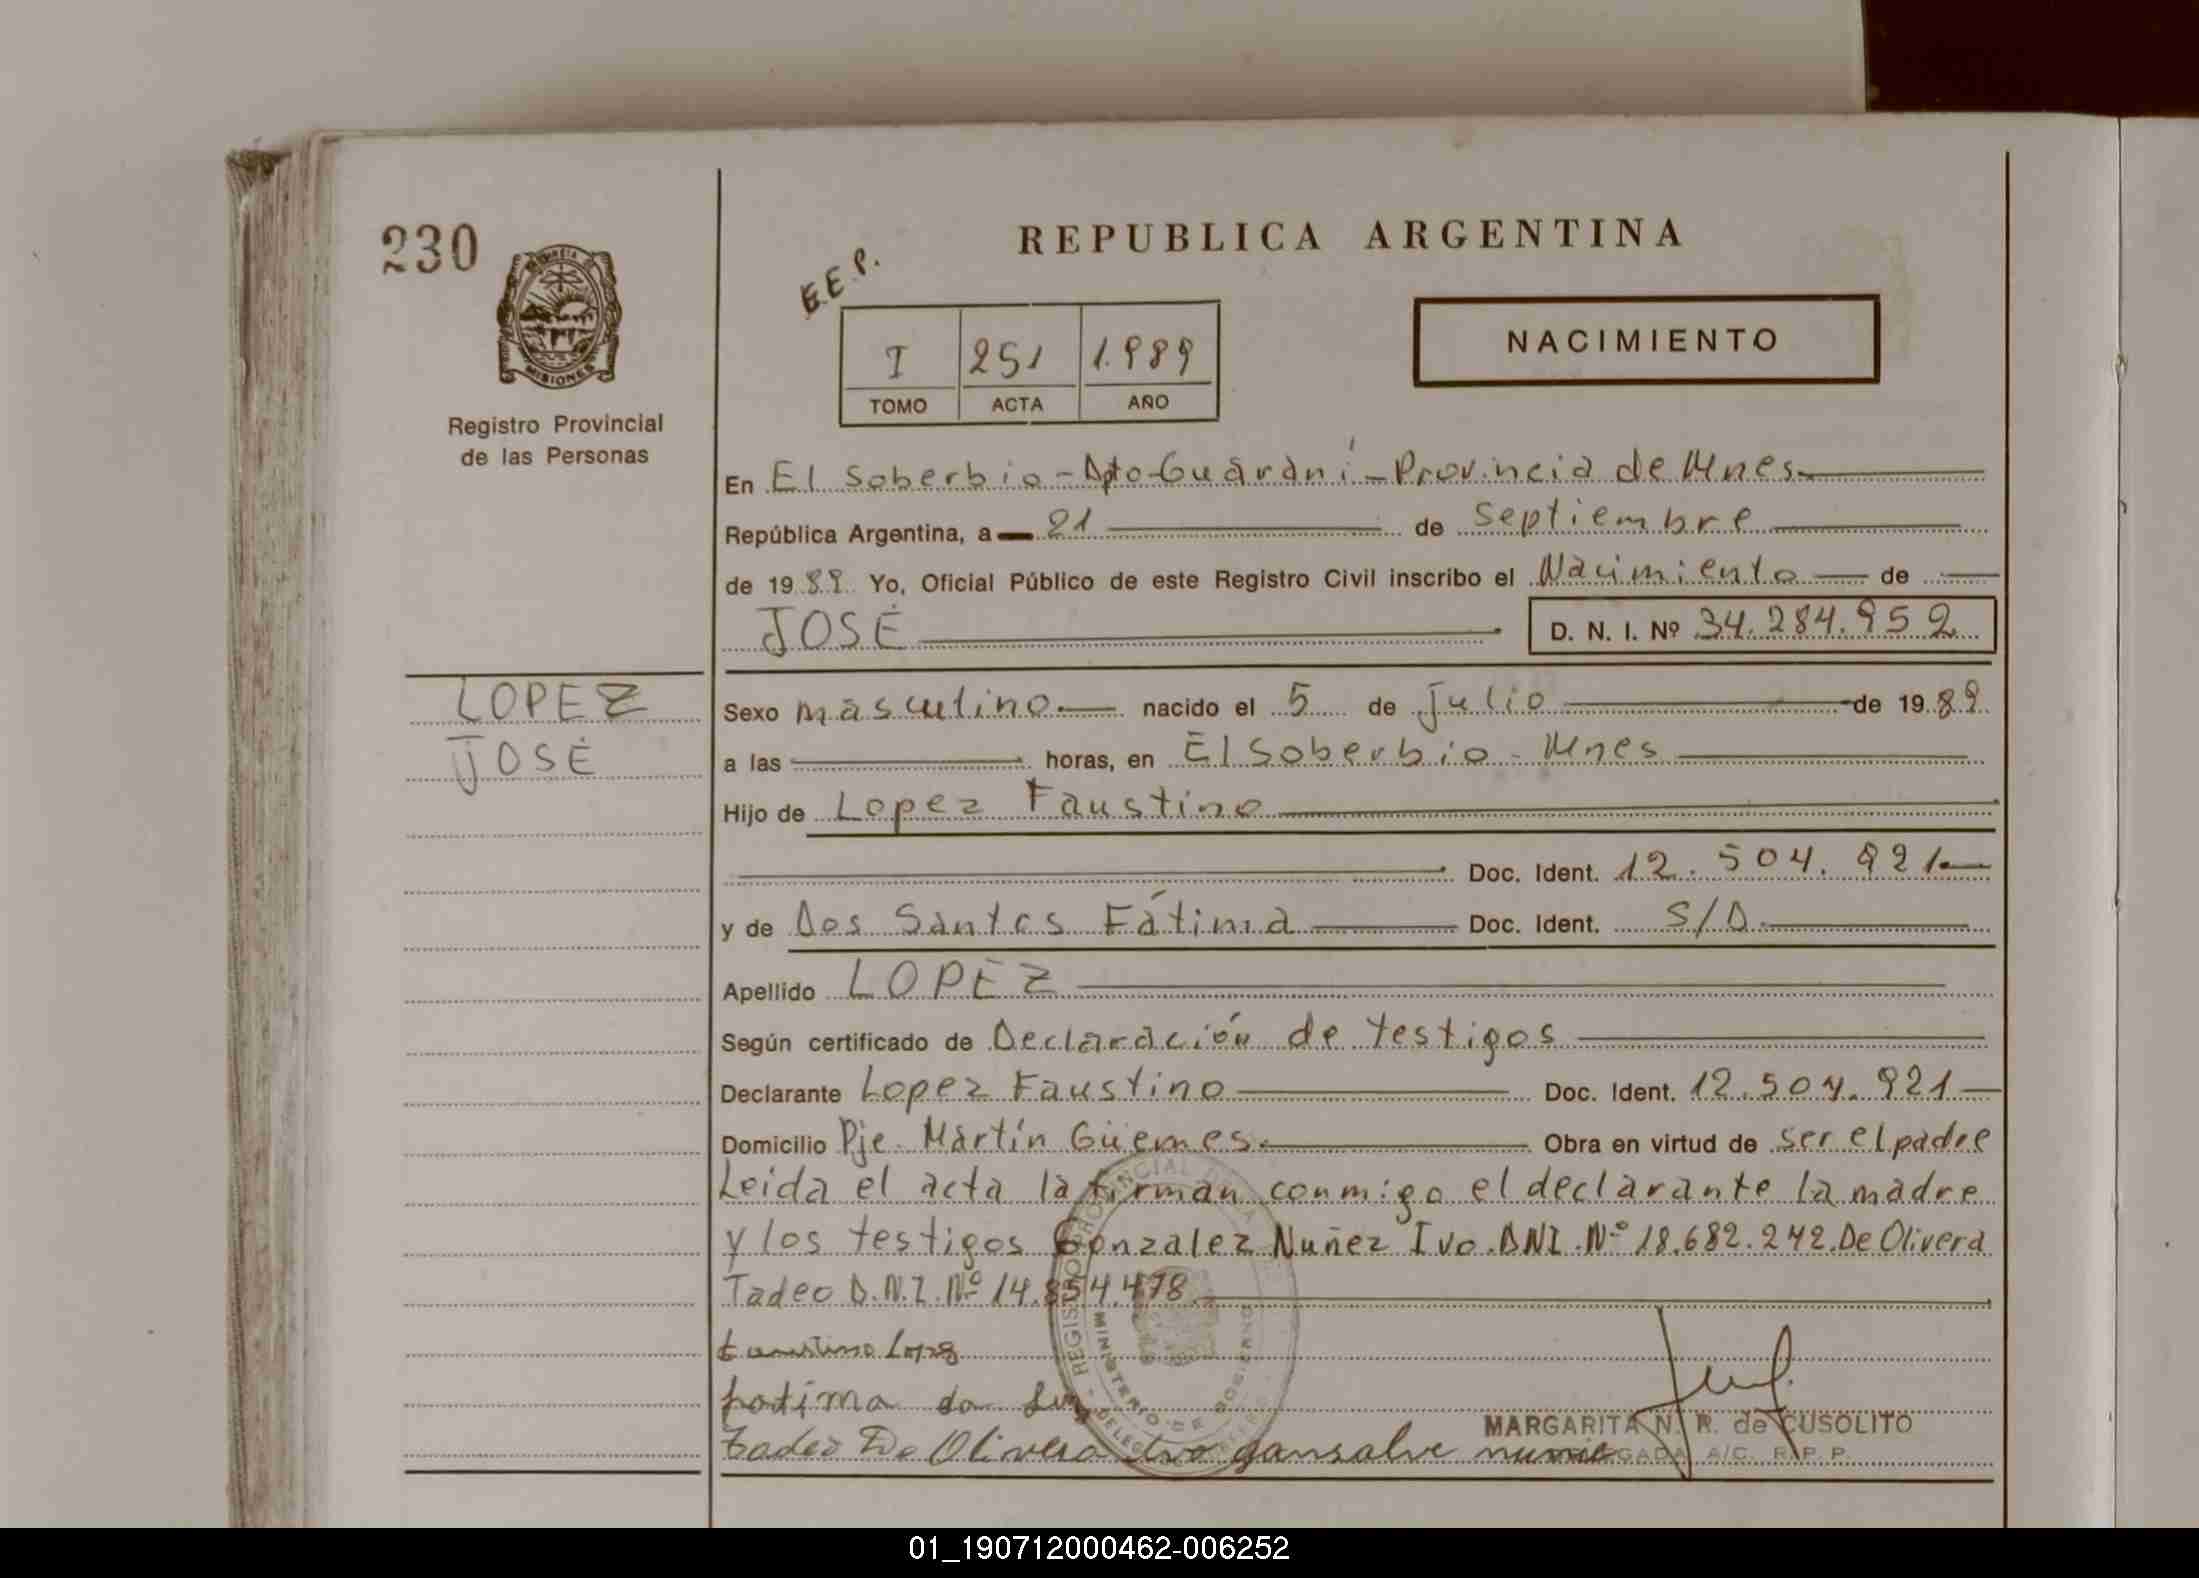 230
REPUBLICA ARGENTINA
E.E.P.
MISIONES
Registro Provincial
de las Personas
I 251 1.989
TOMO ACTA AÑO
NACIMIENTO
En El Soberbio - Dpto Guaraní - Provincia de Mnes
República Argentina, a 21 de Septiembre
de 1989 Yo, Oficial Público de este Registro Civil inscribo el Nacimiento de
JOSÉ D. N. I. Nº 34.284.952
LOPEZ
JOSÉ
Sexo masculino nacido el 5 de Julio de 1989
a las horas, en El Soberbio - Mnes
Hijo de Lopez Faustino
Doc. Ident. 12.504.921
y de Dos Santos Fátima Doc. Ident. S/D
Apellido LOPEZ
Según certificado de Declaración de testigos
Declarante Lopez Faustino Doc. Ident. 12.504.921
Domicilio Pje. Martín Güemes Obra en virtud de ser el padre
Leida el acta la firman conmigo el declarante la madre
y los testigos Gonzalez Nuñez Ivo DNI Nº 18.682.242. De Olivera
Tadeo D.N.I. Nº 14.854.478
REGISTRO PROVINCIAL
MINISTERIO DE GOBIERNO
Faustino Lopez
fatima do
tadeo De Olivera Ivo gansalve
MARGARITA N. R. de CUSOLITO
A/C. R.P.P.
01_190712000462-006252